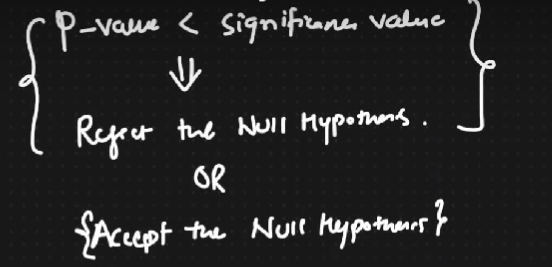 P-value < significance value
⇓
Reject the Null Hypothesis.
OR
{Accept the Null Hypothesis}